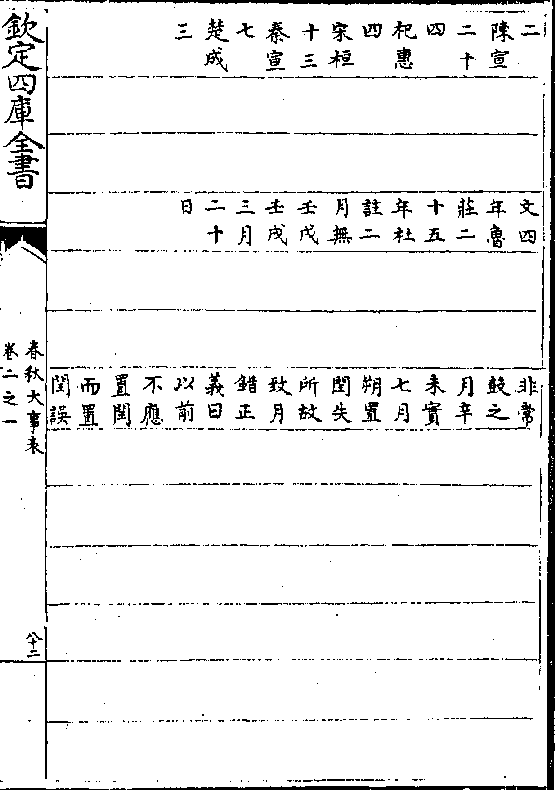 二
陳宣
二十
四
杞惠
四
宋桓
十三
秦宣
七
楚成
三
文四
年魯
莊二
十五
年杜
註二
月無
壬戌
壬戌
三月
二十
日
非常
鼓之
月辛
未實
七月
朔置
閏失
所故
致月
錯正
義曰
以前
不應
置閏
而置
閏誤
欽定四庫全書
春秋大事表
卷二之一
八十二